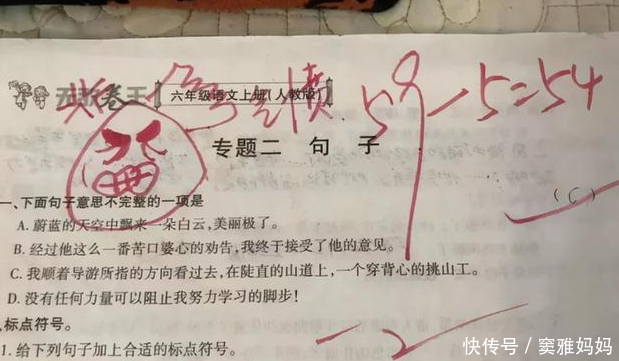 六年级语文上册(人教版)
59-5=54
专题二 句子
一、下面句子意思不完整的一项是
(C)
A. 蔚蓝的天空中飘来一朵白云,美丽极了。
B. 经过他这么一番苦口婆心的劝告,我终于接受了他的意见。
C. 我顺着导游所指的方向看过去,在陡直的山道上,一个穿背心的挑山工。
D. 没有任何力量可以阻止我努力学习的脚步!
标点符号。
1. 给下列句子加上合适的标点符号。
-2
快传号/窦雅妈妈